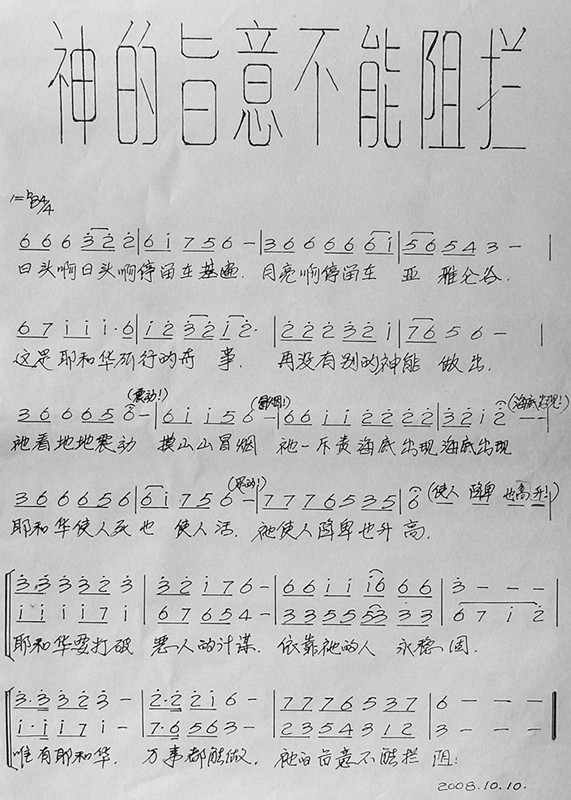 神的旨意不能阻拦
1=♭B 4/4
6 6 6 3 2 2 | 6 1 7 5 6 - | 3 6 6 6 6 6 1 | 5 6 5 4 3 - |
日头啊日头啊停留在基遍. 月亮啊停留在 亚 雅仑谷.
6 7 i i i·6 | i 2 3 2 i 2· | 2 2 2 3 2 i | 7 6 5 6 - |
这是耶和华所行的奇 事. 再没有别的神能 做 出.
(震动!) (冒烟!) (海底出现!)
3 6 6 6 6 5 6 - | 6 i i 5 6 - | 6 6 i i 2 2 2 2 2 | 3 2 i 2 - - |
祂看地地震动 摸山山冒烟 祂一斥责海底出现海底出现
(使人 降卑 也高升!)
3 6 6 6 6 5 6 | 6 i 7 5 6 - | 7 7 7 7 6 5 3 5 | 6 - - - |
耶和华使人死也 使人活. 祂使人降卑也升 高.
3·3 3 3 2 3 | 3 2 i 7 6 - | 6 6 i i i 6 6 6 | 3 - - - |
i i i i 7 i | 6 7 6 5 4 - | 3 3 5 5 5 3 3 3 | 6 7 i 2 |
耶和华要打破 恶人的计谋. 依靠祂的人 永稳固.
3·3 3 2 3 - | 2·2 2 i 6 - | 7 7 7 6 5 3 7 | 6 - - - |
i·i i 7 i - | 7·6 5 6 3 - | 2 3 5 4 3 1 2 | 3 - - - |
唯有耶和华. 万事都能做. 祂的旨意不能拦 阻.
2008.10.10.